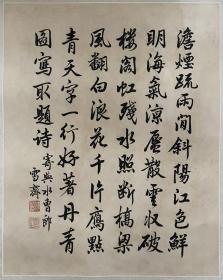 澹煙疏雨間斜陽江色鮮
明海氣涼蜃散雲收破
樓閣虹殘水照斷橋梁
風翻白浪花千片鴈點
青天字一行好著丹青
圖寫取題詩
寄與水曹郎
雪齋